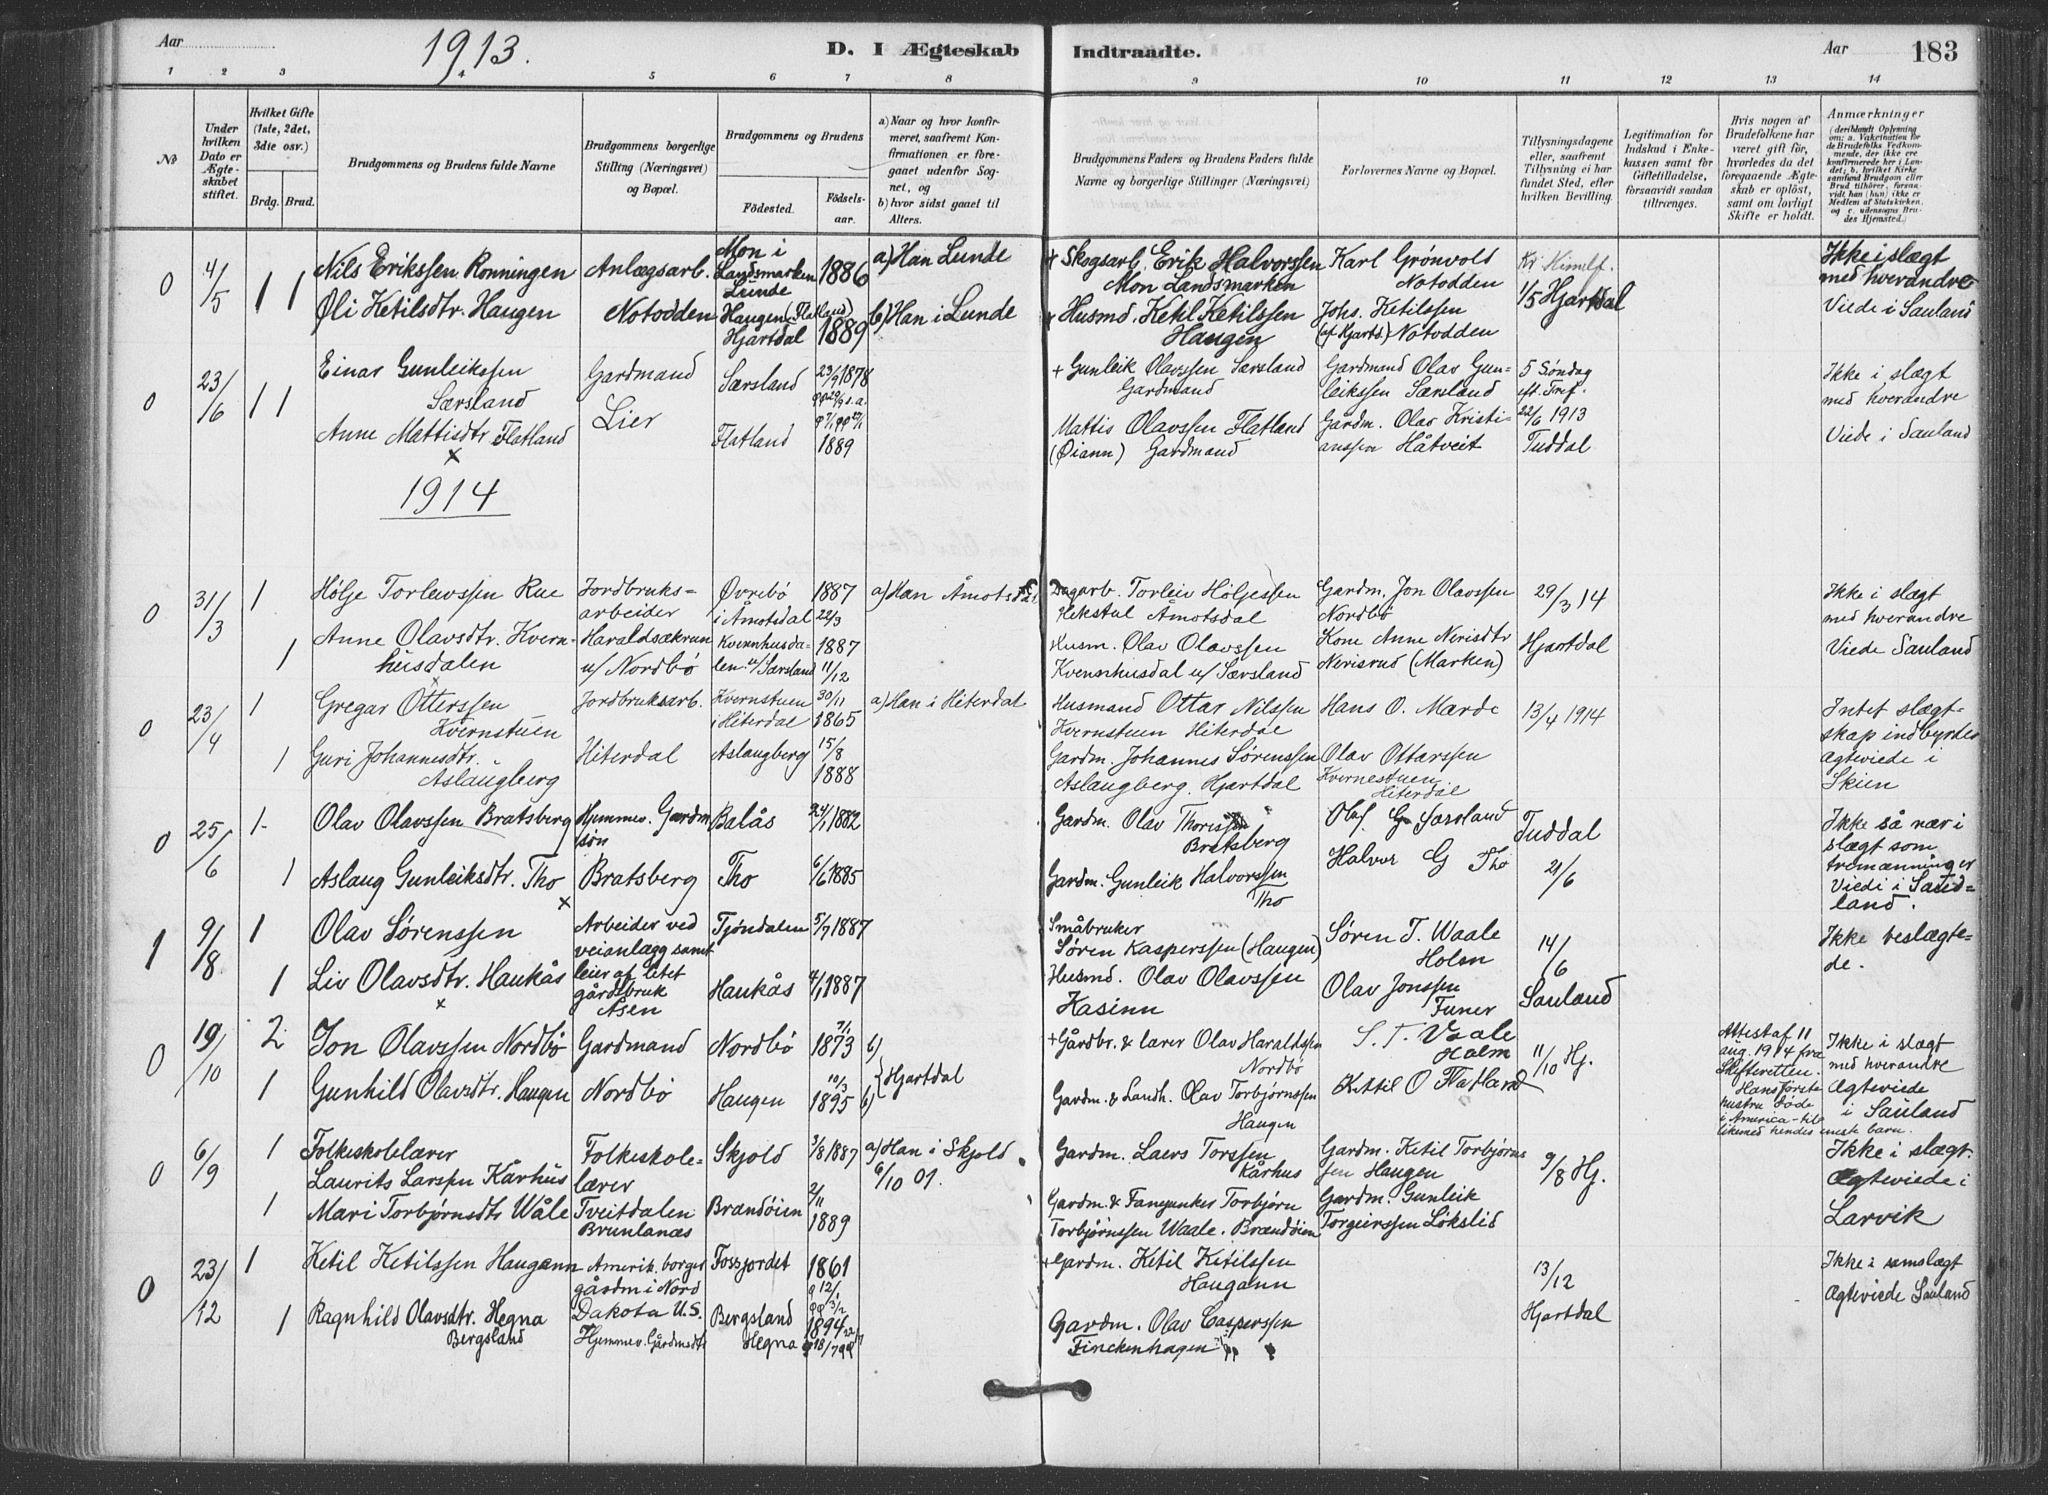 Aar
1913.
D. I Ægteskab
Indtraadte.
Aar
183
1 2 3 4 5 6 7 8 9 10 11 12 13 14
№
Under hvilken Dato er Ægteskabet stiftet.
Hvilket Gifte (1ste, 2det, 3die osv.)
Brdg. Brud.
Brudgommens og Brudens fulde Navne
Brudgommens borgerlige Stilling (Næringsvei) og Bopæl.
Brudgommens og Brudens
Födested.
Födselsaar.
a) Naar og hvor konfirmeret, saafremt Konfirmationen er foregaaet udenfor Sognet, og
b) hvor sidst gaaet til Alters.
Brudgommens Faders og Brudens Faders fulde Navne og borgerlige Stillinger (Næringsvei)
Forlovernes Navne og Bopæl.
Tillysningsdagene eller, saafremt Tillysning ei har fundet Sted, efter hvilken Bevilling.
Legitimation for Indskud i Enkekassen samt for Giftetilladelse, forsaavidt saadan tiltrænges.
Hvis nogen af Brudefolkene har været gift før, hvorledes da det foregaaende Ægteskab er oplöst, samt om lovligt Skifte er holdt.
Anmærkninger
(deriblandt Oplysning om: a. Vakcination for de Brudefolks Vedkommende, der ikke ere konfirmerede her i Landet; b. hvilket Kirkesamfund Brudgom eller Brud tilhörer, forsaavidt han (hun) ikke er Medlem af Statskirken, og c. udensogns Brudes Hjemsted.)
0 4/5 1 1
Nils Erikssen Rønningen
Øli Ketilsdtr. Haugen
Anlægsarb.
Notodden
Mon i
Landsmarken
Lunde
Haugen (Flatland)
Hjartdal
1886
1889
a) Han Lunde
b) Han i Lunde
+ Skogsarb. Erik Halvorssen
Mon Landsmarken
+ Husmd. Ketil Ketilssen
Haugen
Karl Grönvold
Notodden
Johs. Ketilssen
(af Hjartd.) Notodden
1/5 Hjartdal
Ikke i slægt
med hverandre
Viede i Sauland
0 23/6 1 1
Einar Gunleikssen
Særsland
Anne Mattisdtr Flatland
x
Gardmand
Lier
Særsland
Flatland
23/9 1878
1889
+ Gunleik Olavssen Særsland
Gardmand
Mattis Olavssen Flatland
(Øiann) Gardmand
Gardmand Olav Gunleikssen Særsland
Gårdm. Olav Kristianssen Håtveit
5 Söndag
eft. Tref.
22/6 1913
Tuddal
Ikke i slægt
med hverandre
Viede i Sauland
1914
0 31/3 1 1
Hølje Torleivssen Rue
Anne Olavsdtr. Kvernhusdalen
x
Jordbruksarbeider
Haraldsækrun
u/ Nordbö
Øvrebö
i Åmotsdal
Kvernhusdalen u/ Særsland
1887
22/3
1887
11/12
a) Han Åmotsdal
Dagarb. Torleiv Höljessen
Hekstul Åmotsdal
Husm. Olav Olavssen
Kvernhusdal u/ Særsland
Gardm. Jon Olavssen
Nordbö
Kone Anne Nerisdtr
Nerisrud (Marken)
29/3 14
Hjartdal
Ikke i slægt
med hverandre
Viede Sauland
0 23/4 1 1
Gregar Otterssen
Kvernstuen
Guri Johannesdtr.
Aslaugberg
Jordbruksarb.
Hiterdal
Kvernstuen
i Hiterdal
Aslaugberg
30/11
1865
15/8
1888
a) Han i Hiterdal
Husmand Ottar Nilssen
Kvernstuen Hiterdal
Gardm. Johannes Sørenssen
Aslaugberg. Hjartdal
Hans O. Mærde
Olav Ottarssen
Kvernestuen.
Hiterdal
13/4 1914
Intet slægtskap indbyrdes
Ægteviede i
Skien
0 25/6 1 1
Olav Olavssen Bratsberg
Aslaug Gunleiksdtr. Tho
x
Hjemmev. Gardm
søn
Bratsberg
Balås
Tho
24/1 1882
6/6 1885
Gardm. Olav Thorissen
Bratsberg
Gardm. Gunleik Halvorssen
Tho
Olaf G Særsland
Halvor G Tho
Tuddal
21/6
Ikke så nær i
slægt som
tremænninger
Viedi i Sauland.
1 9/8 1 1
Olav Sørenssen
Liv Olavsdtr. Haukås
x
Arbeider ved
veianlægg samt
leier af litet
gårdsbruk
Åsen
Tjöndalen
Haukås
5/7 1887
4/1 1887
Småbruker
Søren Kasperssen (Haugen)
Husmd. Olav Olavssen
Kasinn
Søren T. Waale
Holm
Olav Jonssen
Funer
14/6
Sauland
Ikke beslægtede.
0 19/10 2 1
Jon Olavssen Nordbö
Gunhild Olavsdtr. Haugen
Gardmand
Nordbö
Nordbö
Haugen
1873
10/3
1895
b) b) Hjartdal
+ Gårdbr. & lærer Olav Haraldssen
Nordbö
Gardm. & Landh. Olav Torbjørnssen
Haugen
S. T. Vaale
Holm
Kittil O Flatland
11/10 Hj.
Attest af 11
aug. 1914 fra
Skifteretten.
Hans første
hustru døde
i America - tillikemed hendes enest barn.
Ikke i slægt
med hverandre
Ægteviede
i Sauland
0 6/9 1 1
Folkeskolelærer
Laurits Larsen Kårhus
Mari Torbjørnsdtr Wåle
Folkeskolelærer
Tveitdalen
Brunlanæs
Skjold
Brændöien
3/8 1887
2/11
1889
a) Han i Skjold
6/10 01.
Gardm. Laers Torssen
Kårhus
Gardm. & Fanejunker Torbjørn
Torbjørnssen Waale. Brændöien
Gardm. Ketil Torbjørnssen Haugen
Gardm. Gunleik
Torgeirssen Lökslid
9/8 Hj.
Ikke i slægt.
Ægteviede i
Larvik
0 23/12 1 1
Ketil Ketilssen Haugann
Ragnhild Olavsdtr. Hegna
Bergsland
Amerik. borger
gårdm i Nord
Dakota U.S.
Hjemmev. Gårdmsdtr
Fossjordet
Bergsland
Hegna
1861
1894
+ Gardm. Ketil Ketilssen
Haugann
Gardm. Olav Casperssen
Finckenhagen
13/12
Hjartdal
Ikke i samslægt
Ægteviede Sauland